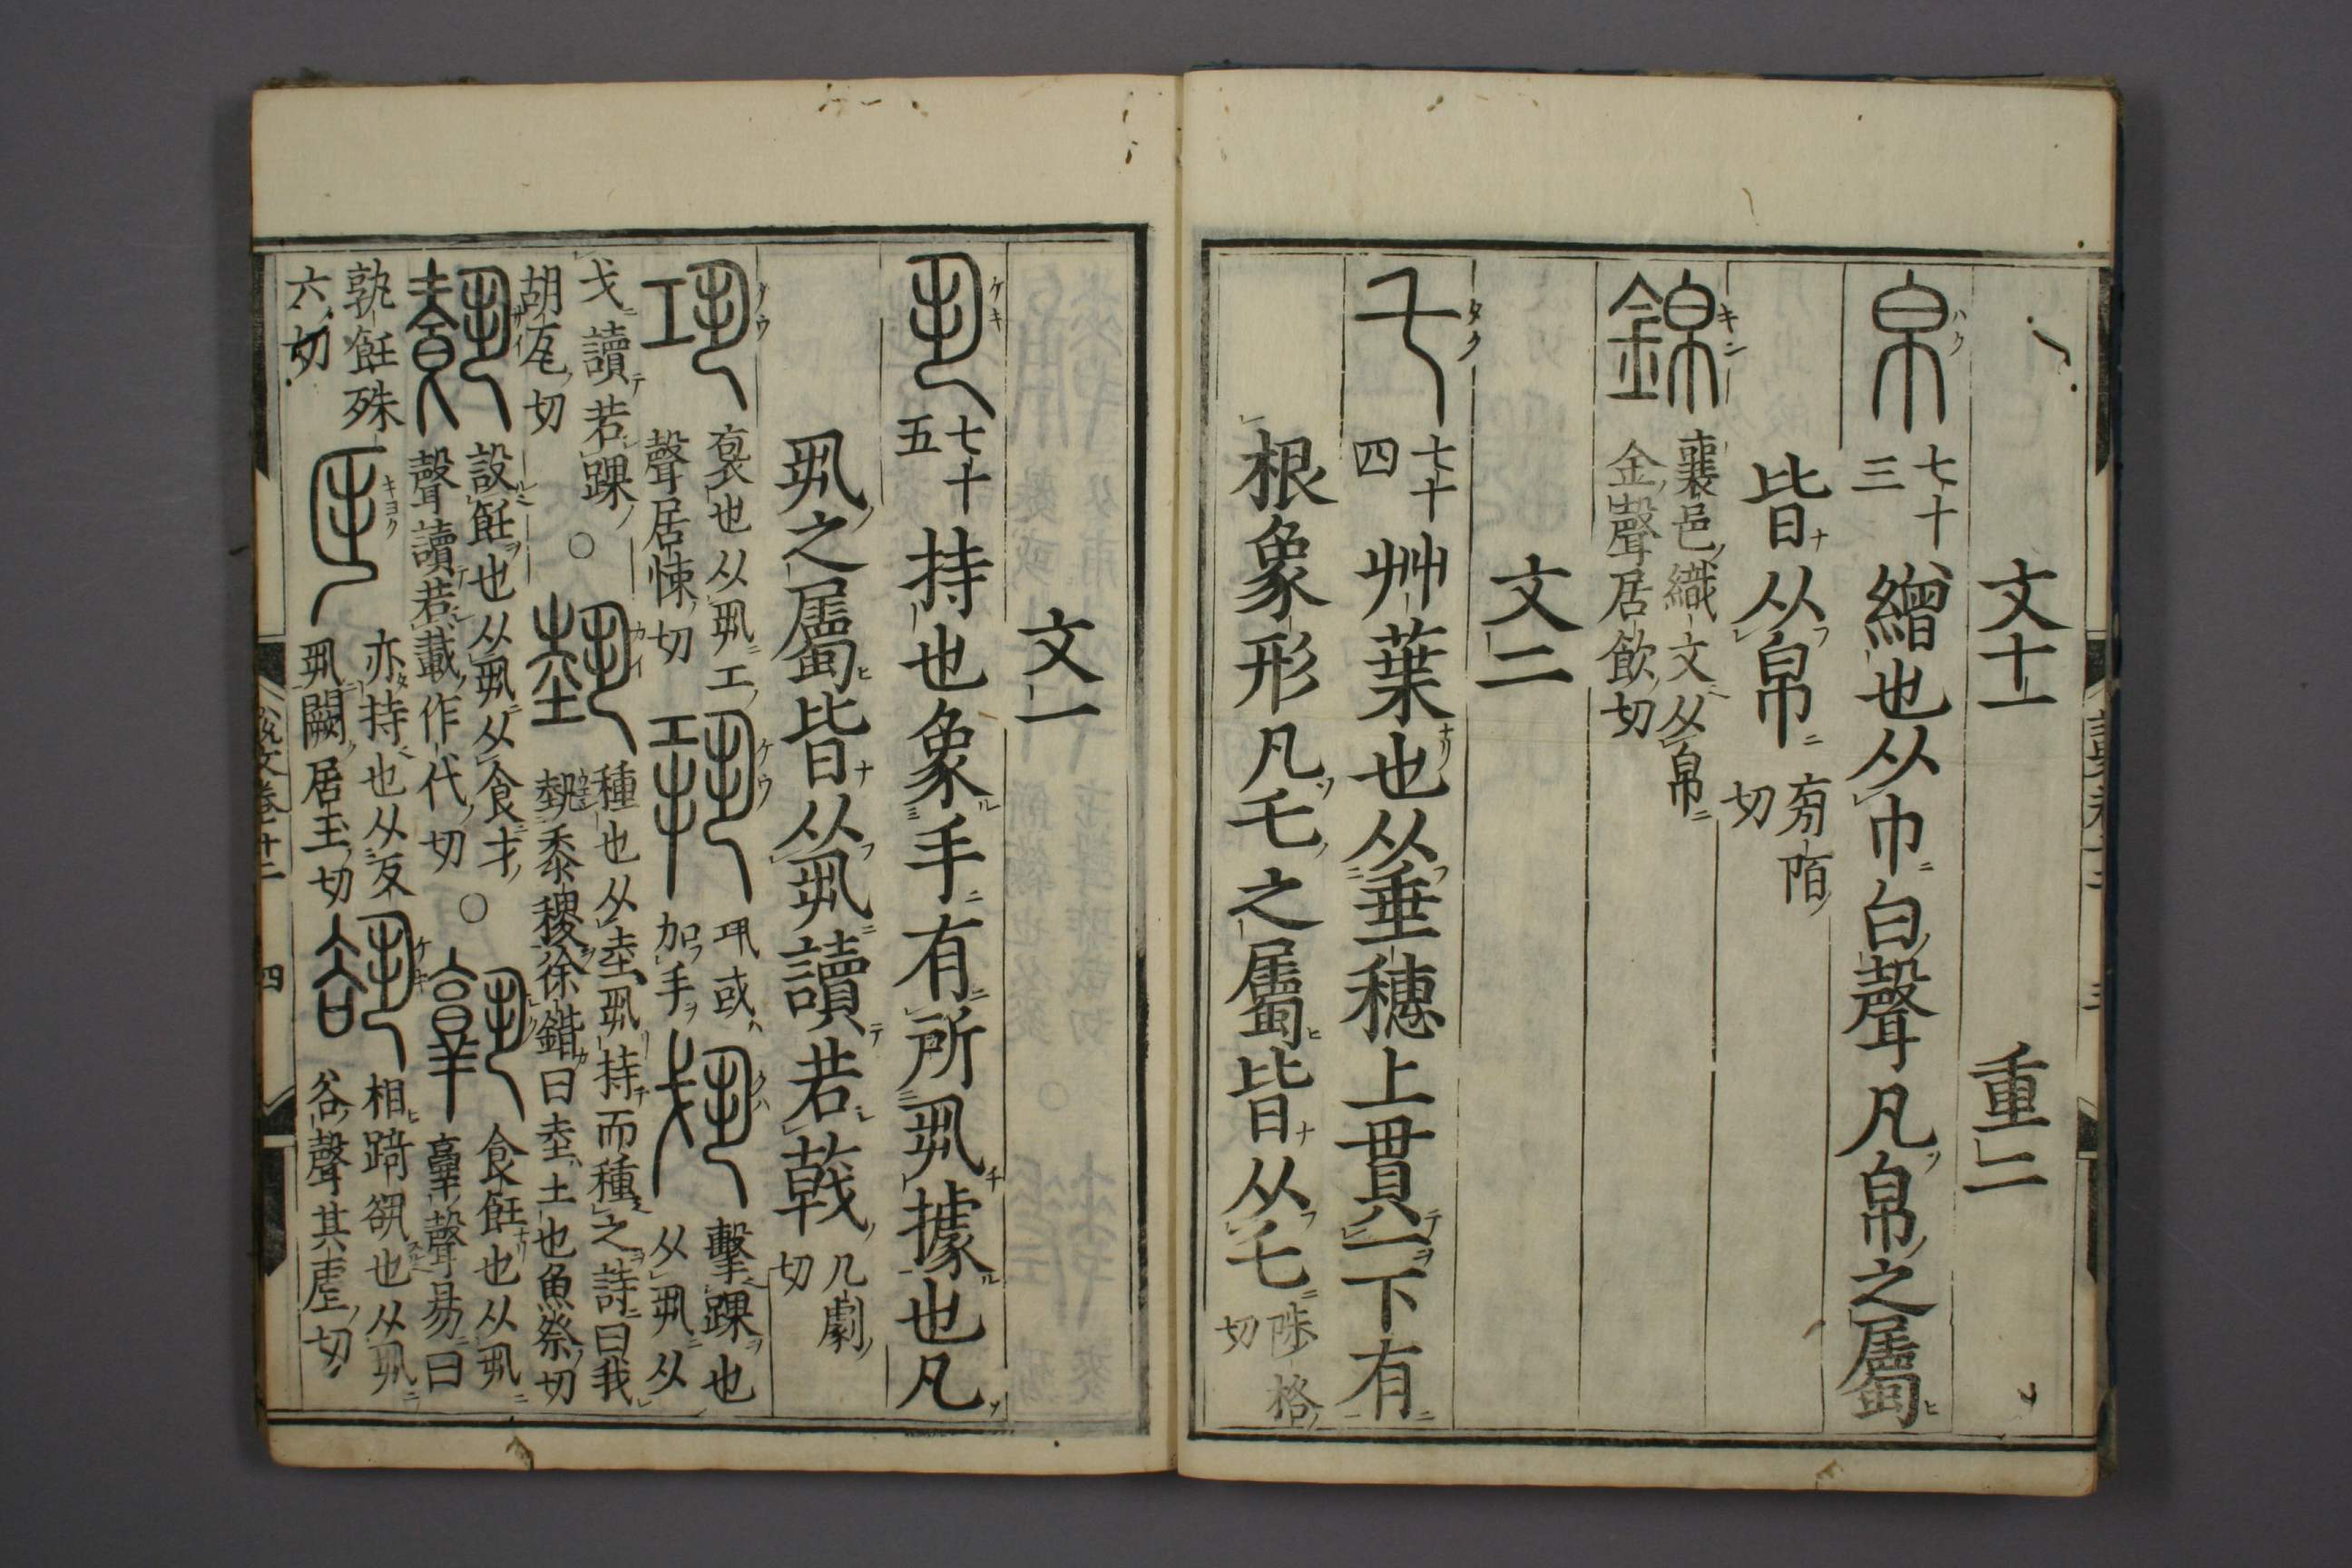 文十一　重二
帛　七十三　繒也从巾白聲凡帛之屬
皆从帛　旁陌切
錦　襄邑織文从帛
金聲居飲切
文二
乇　七十四　艸葉也从𠂹穗上貫一下有
根象形凡乇之屬皆从乇　陟格切
文一
丮　七十五　持也象手有所丮據也凡
丮之屬皆从丮讀若戟　几劇切
𢀜　褱也从丮工
聲居悚切
𢀜或
加手
擊踝也
从丮从
戈讀若踝
胡瓦切
○
種也从坴丮持而種之詩曰我
埶黍稷徐鍇曰坴土也魚祭切
設飪也从丮从食才
聲讀若載作代切
○
食飪也从丮
𦎫聲易曰
孰飪殊
六切
亦持也从反
丮闕居玉切
相踦𧮭也从丮
谷聲其虐切
說文卷十二　四